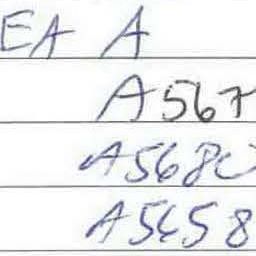 EA A
A567
A5680
A5658